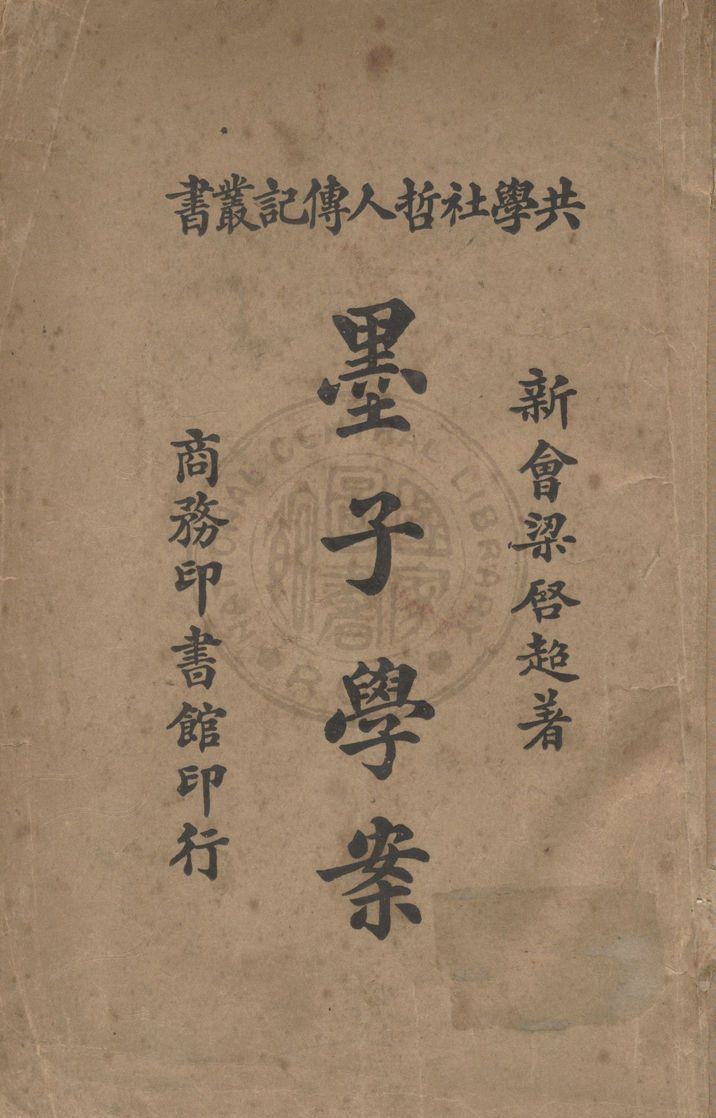 共學社哲人傳記叢書
新會梁啓超著
墨子學案
商務印書館印行
NATIONAL CENTRAL LIBRARY